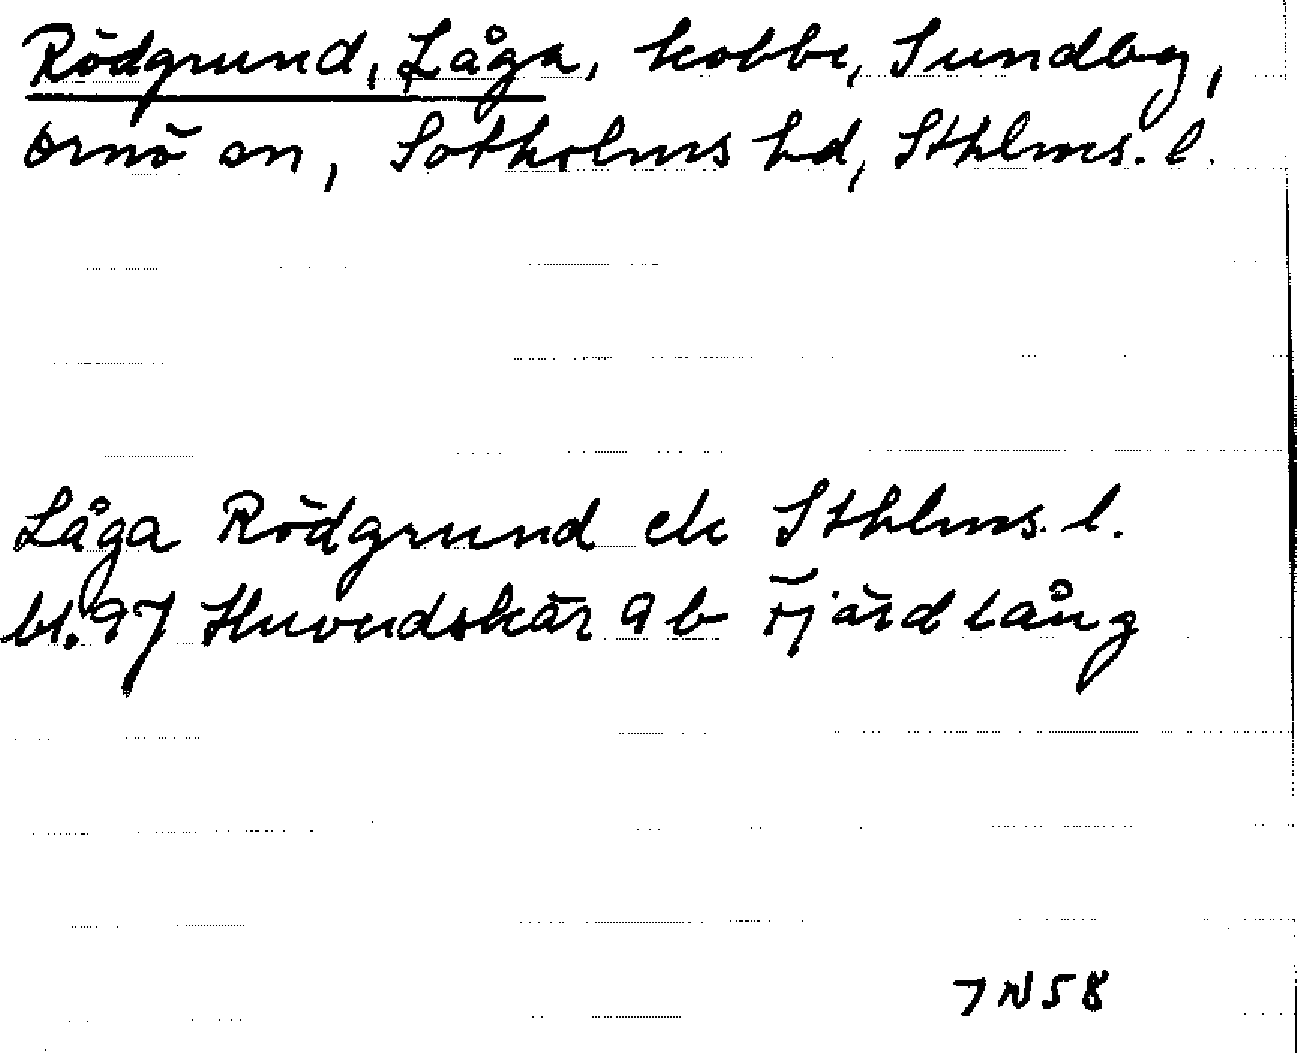 Rödgrund, Låga, kobbe, Sundby,
Ornö sn, Sotholms hd, Sthlms. l.
Låga Rödgrund ek Sthlms. l.
bl. 97 Huvudskär 9 b Fjärdlång
JN58